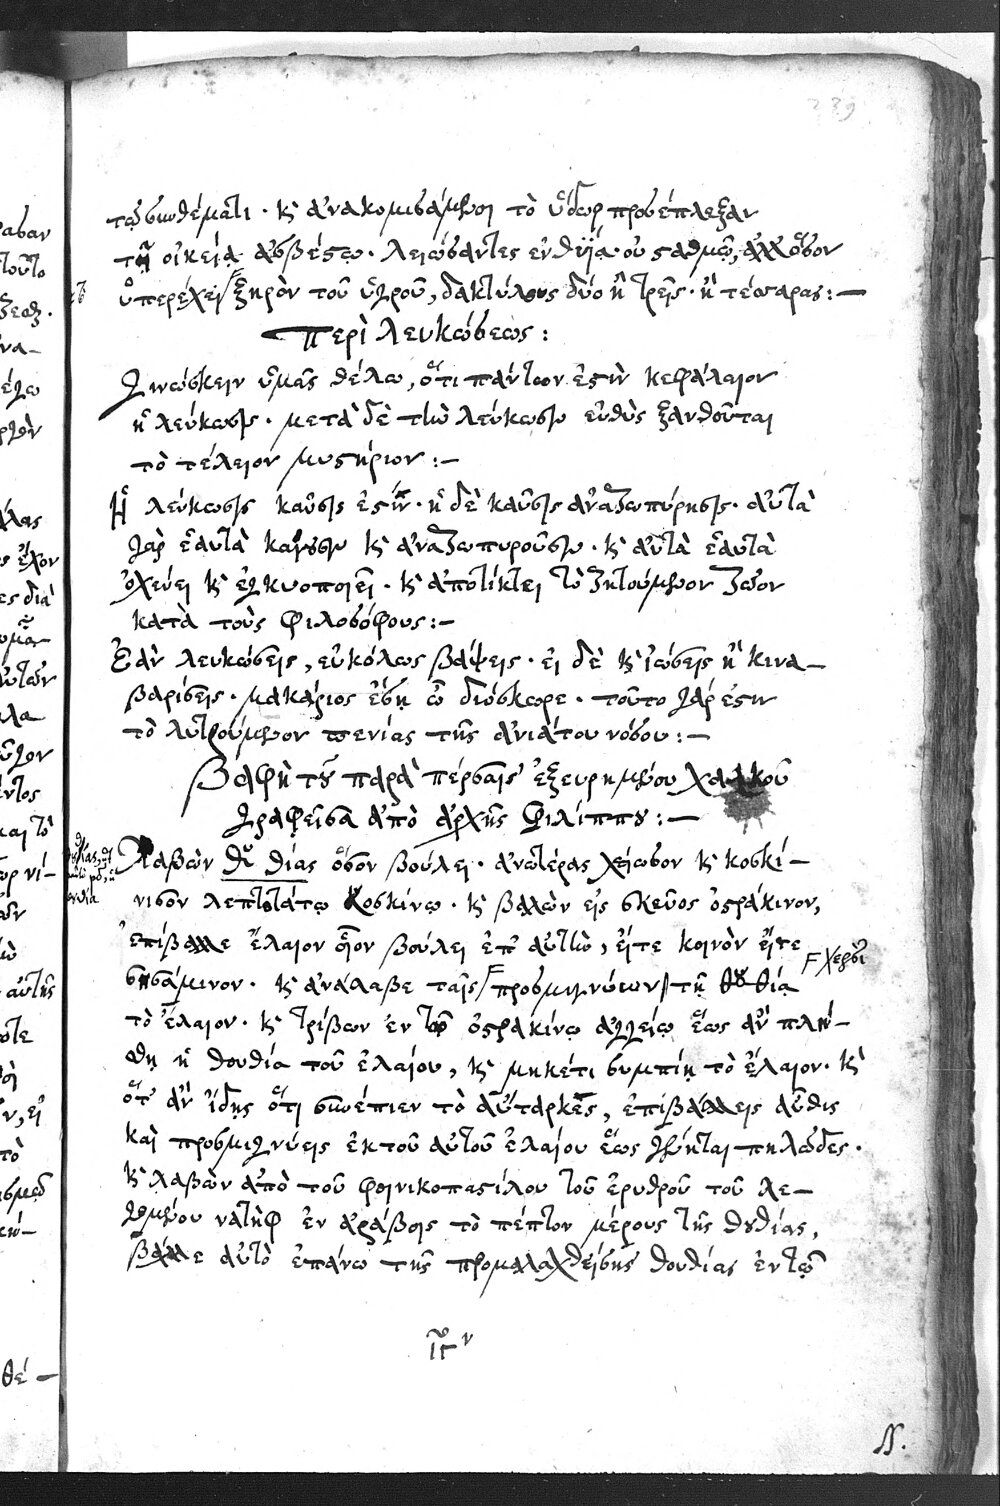 τῷ συνθέματι · καὶ ἀνακομισάμενοι τὸ ὕδωρ προσέπλεξαν
τῇ οἰκείᾳ ἀσβέστῳ · λειώσαντες ἐν θυΐᾳ · οὐ σταθμῷ, ἀλλ' ὅσον
ὑπερέχει ξηρὸν τοῦ ὑγροῦ, δακτύλους δύο ἢ τρεῖς · ἢ τέσσαρας :—
Περὶ λευκώσεως :
Γινώσκειν ὑμᾶς θέλω, ὅτι πάντων ἐστὶν κεφάλαιον
ἡ λεύκωσις · μετὰ δὲ τὴν λεύκωσιν εὐθὺς ξανθοῦται
τὸ τέλειον μυστήριον :—
Ἡ λεύκωσις καῦσις ἐστίν · ἡ δὲ καῦσις ἀναζωπύρησις · αὐτὰ
γὰρ ἑαυτὰ καίουσιν καὶ ἀναζωπυροῦσιν · καὶ αὐτὰ ἑαυτὰ
ὀχεύει καὶ ἐγκυοποιεῖ · καὶ ἀποτίκτει τὸ ζητούμενον ζῶον
κατὰ τοὺς φιλοσόφους :—
Ἐὰν λευκώσεις, εὐκόλως βάψεις · εἰ δὲ καὶ ἰώσεις ἢ κινα–
βαρίσεις · μακάριος ἔσῃ ὦ διόσκορε · τοῦτο γάρ ἐστιν
τὸ λυτρούμενον πενίας τῆς ἀνιάτου νόσου :—
Βαφὴ τοῦ παρὰ πέρσαις ἐξευρημένου χαλκοῦ
γραφεῖσα ἀπὸ ἀρχῆς Φιλίππου :—
Λαβὼν θυθίας ὅσον βούλει · ἀνωτέρας χείωσον καὶ κοσκί–
νισον λεπτοτάτῳ κοσκίνῳ · καὶ βαλὼν εἰς σκεῦος ὀστράκινον,
ἐπίβαλλε ἔλαιον ὅσον βούλει ἐπ' αὐτὴν, εἴτε κοινὸν εἴτε
σησάμινον · καὶ ἀνάλαβε ταῖς προσμιγνύων τῇ θουθίᾳ
χερσὶ
τὸ ἔλαιον · καὶ τρίβων ἐν τῷ ὀστρακίνῳ ἀγγείῳ ἕως ἂν πλη–
σθῇ ἡ θουθία τοῦ ἐλαίου, καὶ μηκέτι συμπίῃ τὸ ἔλαιον · καὶ
ὅτ' ἂν ἴδῃς ὅτι συνέπιεν τὸ αὔταρκες, ἐπιβάλλεις αὖθις
καὶ προσμιγνύεις ἐκ τοῦ αὐτοῦ ἐλαίου ἕως γένηται πηλῶδες ·
καὶ λαβὼν ἀπὸ τοῦ φοινικοπαστίλου τοῦ ἐρυθροῦ τοῦ λε–
γομένου νατὴφ ἐν ἀράβοις τὸ πέπτον μέρους τῆς θουθίας,
βάλλε αὐτὸ ἐπάνω τῆς προμαλαχθείσης θουθίας ἐν τῷ